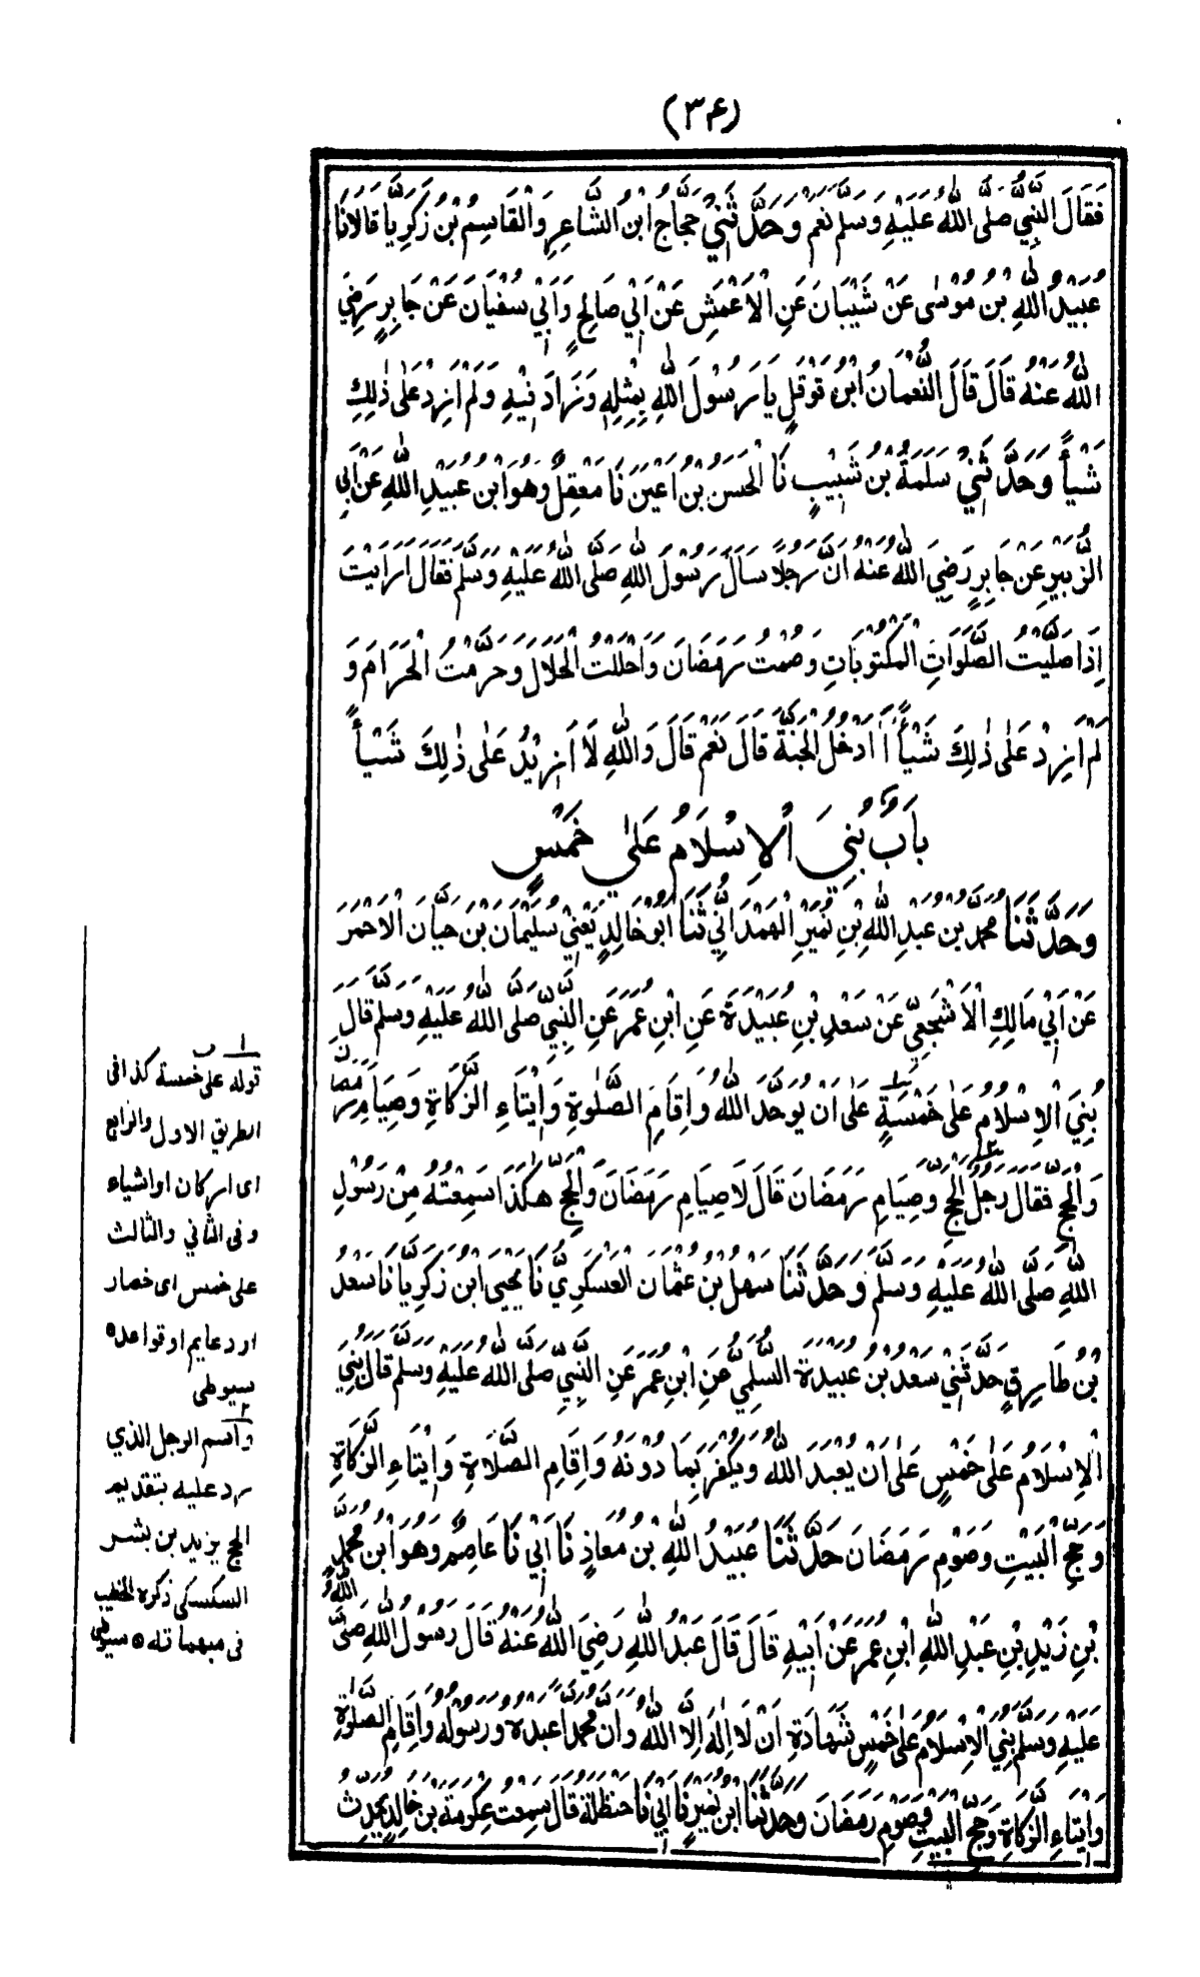 (٣٤)
فَقَالَ النَّبِيُّ صَلَّى اللّٰهُ عَلَيْهِ وَسَلَّمَ نَعَمْ وَحَدَّثَنِيْ حَجَّاجُ ابْنُ الشَّاعِرِ وَالْقَاسِمُ بْنُ زَكَرِيَّا قَالَا نَا
عُبَيْدُ اللّٰهِ بْنُ مُوْسٰى عَنْ شَيْبَانَ عَنِ الْاَعْمَشِ عَنْ اَبِيْ صَالِحٍ وَاَبِيْ سُفْيَانَ عَنْ جَابِرٍ رَضِيَ
اللّٰهُ عَنْهُ قَالَ قَالَ النُّعْمَانُ ابْنُ قَوْقَلٍ يَا رَسُوْلَ اللّٰهِ بِمِثْلِهٖ وَزَادَ فِيْهِ وَلَمْ اَزِدْ عَلٰى ذٰلِكَ
شَيْأً وَحَدَّثَنِيْ سَلَمَةُ بْنُ شَبِيْبٍ نَا الْحَسَنُ بْنُ اَعْيَنَ نَا مَعْقِلٌ وَهُوَ ابْنُ عُبَيْدِ اللّٰهِ عَنْ اَبِي
الزُّبَيْرِ عَنْ جَابِرٍ رَضِيَ اللّٰهُ عَنْهُ اَنَّ رَجُلًا سَاَلَ رَسُوْلَ اللّٰهِ صَلَّى اللّٰهُ عَلَيْهِ وَسَلَّمَ فَقَالَ اَرَاَيْتَ
اِذَا صَلَّيْتُ الصَّلَوَاتِ الْمَكْتُوْبَاتِ وَصُمْتُ رَمَضَانَ وَاَحْلَلْتُ الْحَلَالَ وَحَرَّمْتُ الْحَرَامَ وَ
لَمْ اَزِدْ عَلٰى ذٰلِكَ شَيْأً اَ اَدْخُلُ الْجَنَّةَ قَالَ نَعَمْ قَالَ وَاللّٰهِ لَا اَزِيْدُ عَلٰى ذٰلِكَ شَيْأً
بَابُ بُنِيَ الْاِسْلَامُ عَلٰى خَمْسٍ
وَحَدَّثَنَا مُحَمَّدُ بْنُ عَبْدِ اللّٰهِ بْنِ نُمَيْرِ الْهَمْدَانِيُّ ثَنَا اَبُوْ خَالِدٍ يَعْنِيْ سُلَيْمَانَ بْنَ حَيَّانَ الْاَحْمَرَ
عَنْ اَبِيْ مَالِكِ الْاَشْجَعِيِّ عَنْ سَعْدِ بْنِ عُبَيْدَةَ عَنِ ابْنِ عُمَرَ عَنِ النَّبِيِّ صَلَّى اللّٰهُ عَلَيْهِ وَسَلَّمَ قَالَ
بُنِيَ الْاِسْلَامُ عَلٰى خَمْسَةٍ عَلٰى اَنْ يُوَحَّدَ اللّٰهُ وَاِقَامِ الصَّلٰوةِ وَاِيْتَاءِ الزَّكَاةِ وَصِيَامِ رَمَضَانَ
وَالْحَجِّ فَقَالَ رَجُلٌ الْحَجِّ وَصِيَامِ رَمَضَانَ قَالَ لَا صِيَامِ رَمَضَانَ وَالْحَجِّ هٰكَذَا سَمِعْتُهُ مِنْ رَسُوْلِ
اللّٰهِ صَلَّى اللّٰهُ عَلَيْهِ وَسَلَّمَ وَحَدَّثَنَا سَهْلُ بْنُ عُثْمَانَ الْعَسْكَرِيُّ نَا يَحْيَى ابْنُ زَكَرِيَّا نَا سَعْدُ
بْنُ طَارِقٍ حَدَّثَنِيْ سَعْدُ بْنُ عُبَيْدَةَ السُّلَمِيُّ عَنِ ابْنِ عُمَرَ عَنِ النَّبِيِّ صَلَّى اللّٰهُ عَلَيْهِ وَسَلَّمَ قَالَ بُنِيَ
الْاِسْلَامُ عَلٰى خَمْسٍ عَلٰى اَنْ يُعْبَدَ اللّٰهُ وَيُكْفَرَ بِمَا دُوْنَهُ وَاِقَامِ الصَّلَاةِ وَاِيْتَاءِ الزَّكَاةِ
وَحَجِّ الْبَيْتِ وَصَوْمِ رَمَضَانَ حَدَّثَنَا عُبَيْدُ اللّٰهِ بْنُ مُعَاذٍ نَا اَبِيْ نَا عَاصِمٌ وَهُوَ ابْنُ مُحَمَّدِ
بْنِ زَيْدِ بْنِ عَبْدِ اللّٰهِ ابْنِ عُمَرَ عَنْ اَبِيْهِ قَالَ قَالَ عَبْدُ اللّٰهِ رَضِيَ اللّٰهُ عَنْهُ قَالَ رَسُوْلُ اللّٰهِ صَلَّى اللّٰهُ
عَلَيْهِ وَسَلَّمَ بُنِيَ الْاِسْلَامُ عَلٰى خَمْسٍ شَهَادَةِ اَنْ لَا اِلٰهَ اِلَّا اللّٰهُ وَاَنَّ مُحَمَّدًا عَبْدُهُ وَرَسُوْلُهُ وَاِقَامِ الصَّلٰوةِ
وَاِيْتَاءِ الزَّكَاةِ وَحَجِّ الْبَيْتِ وَصَوْمِ رَمَضَانَ وَحَدَّثَنَا ابْنُ نُمَيْرٍ نَا اَبِيْ نَا حَنْظَلَةُ قَالَ سَمِعْتُ عِكْرِمَةَ بْنَ خَالِدٍ يُحَدِّثُ
قوله على خمسة كذا فى
الطريق الاول والرابع
اى اركان او اشياء
وفى الثاني والثالث
على خمس اى خصار
او دعايم او قواعد
سيوطى
واسم الرجل الذي
رد عليه بتقديم
الحج يزيد بن بشر
السكسكى ذكره الخطيب
فى مبهماته سيوطى